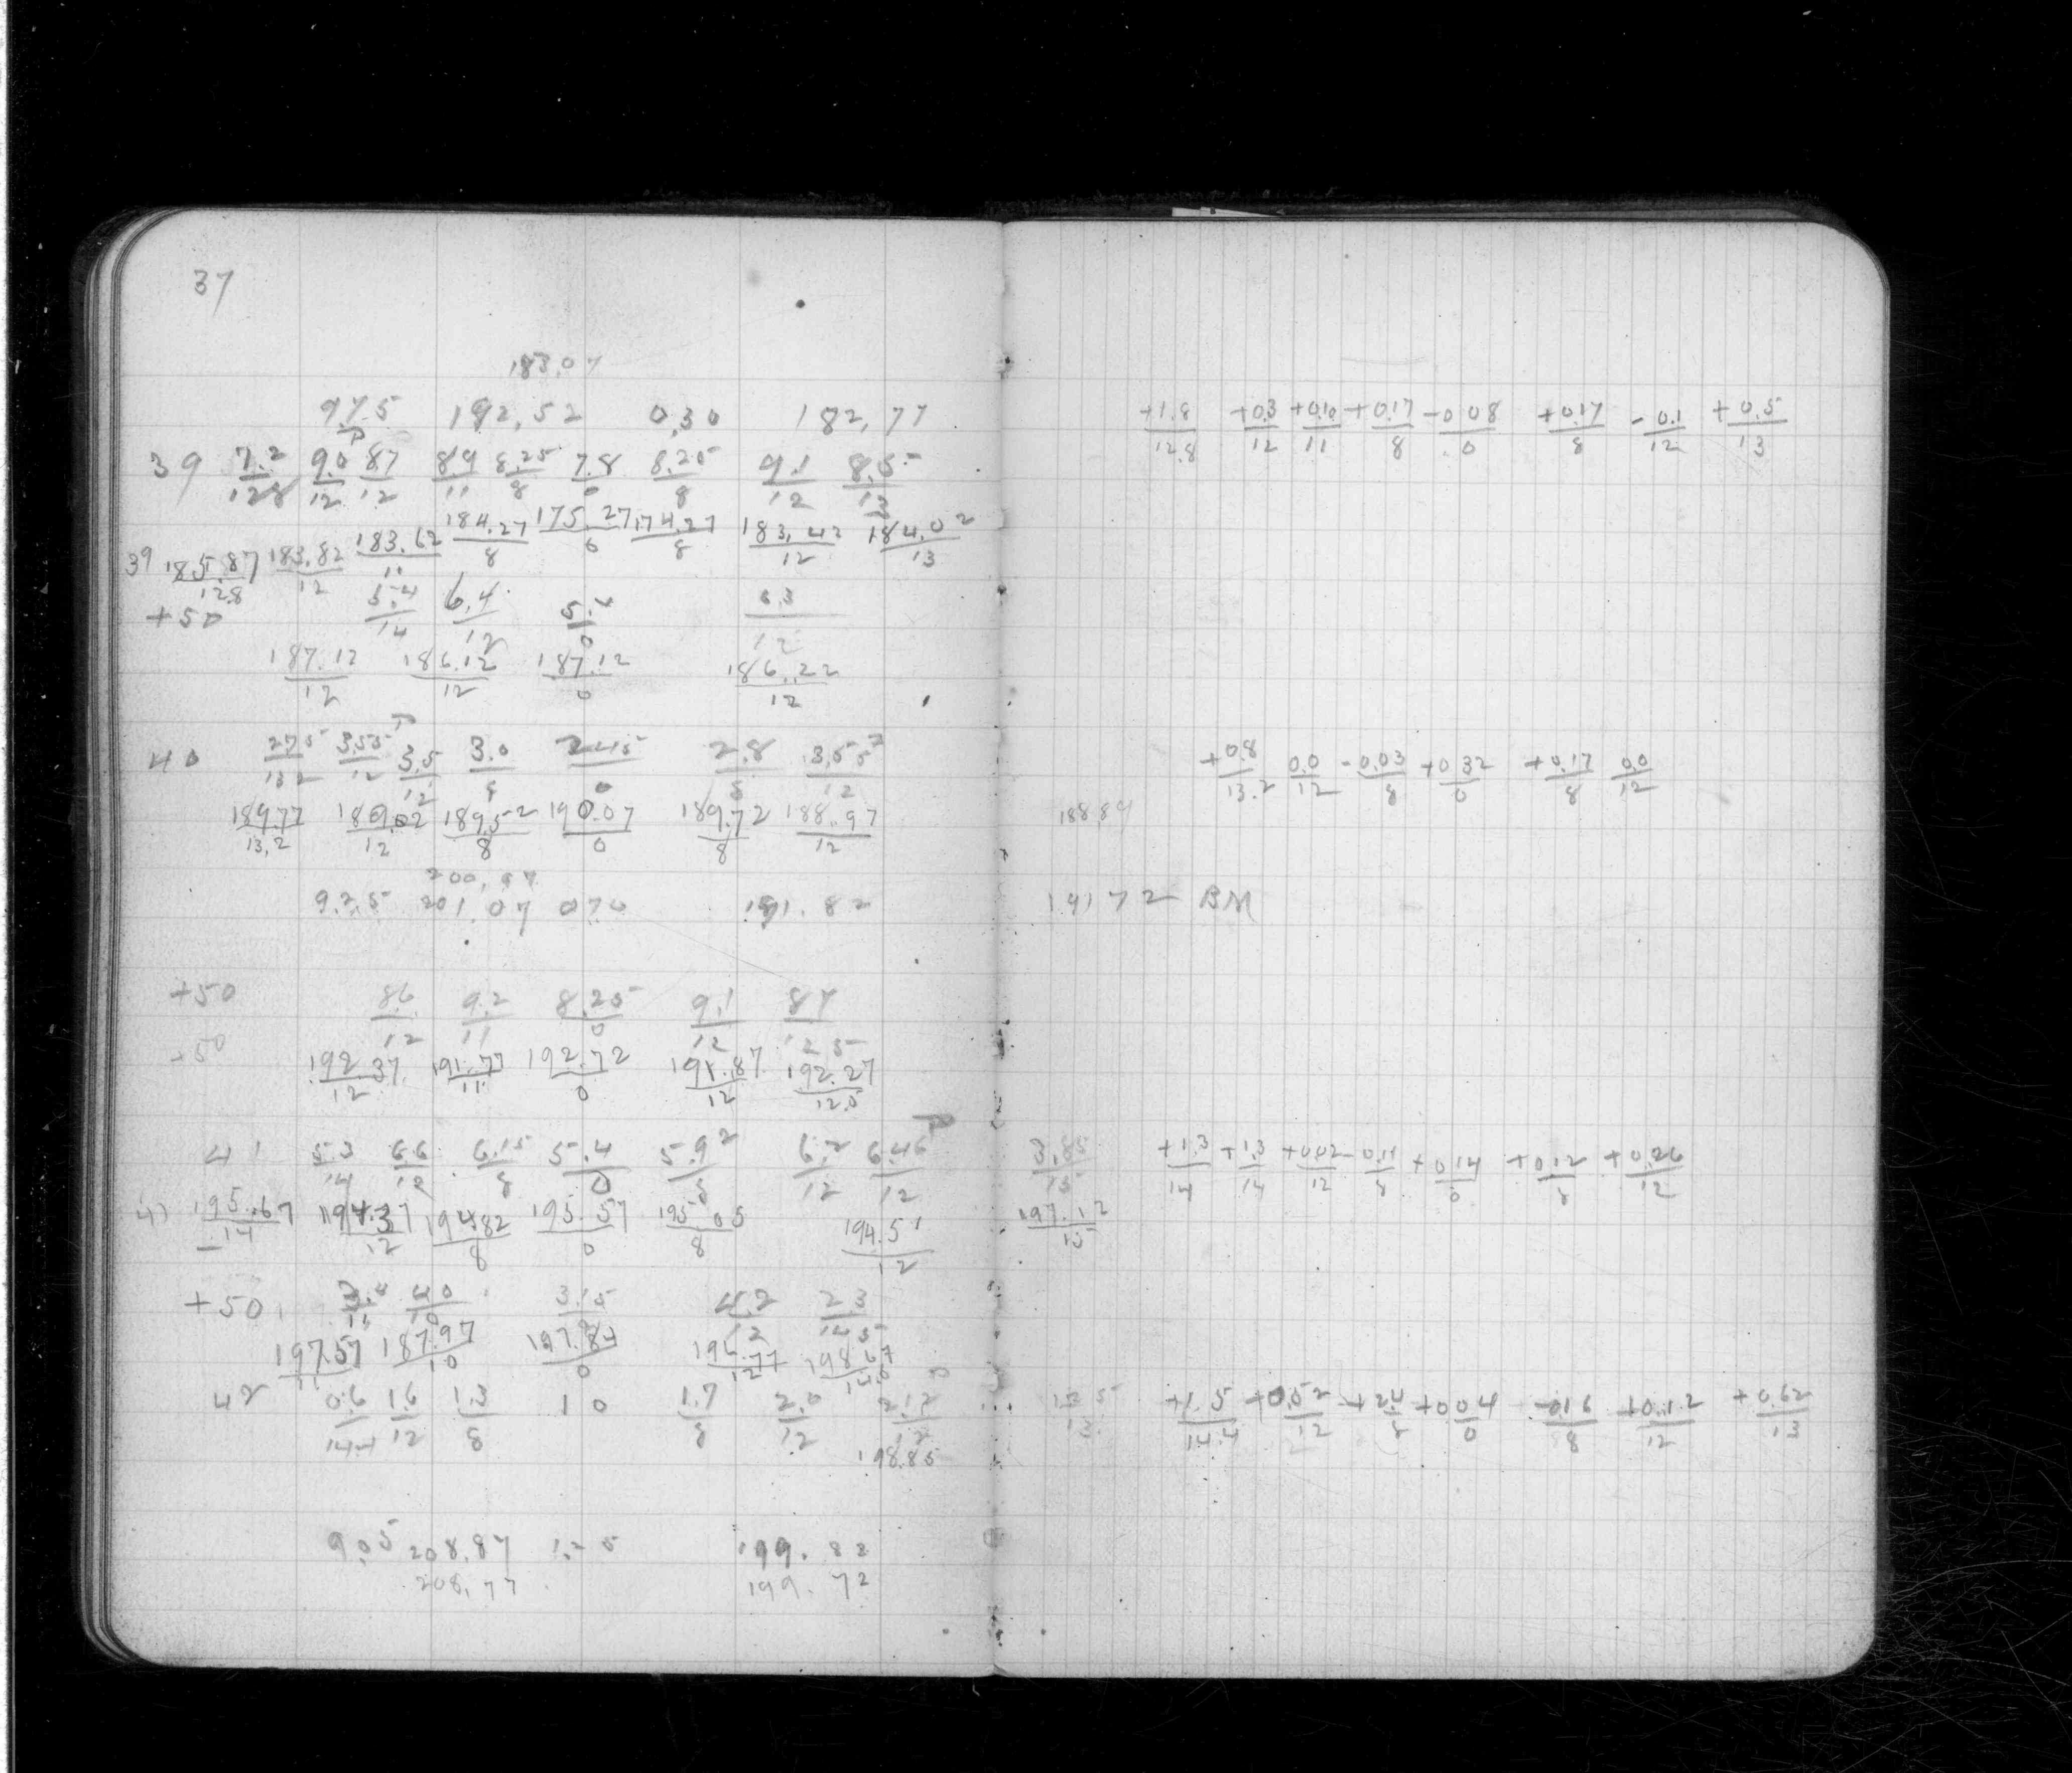 37
183.07
9.75 192.52 0.30 182.77
39 7.2/12.8 9.0/12 8.7/12 8.9/11 8.25/8 7.8/0 8.25/8 9.1/12 8.5/13
39 185.87/12.8 183.82/12 183.62/11 184.27/8 175.27/0 174.27/8 183.42/12 184.02/13
+50 5.4/14 6.4/12 5.4/0 6.3/12
187.12/12 186.12/12 187.12/0 186.22/12
40 2.75/13.2 3.55/12 3.5/12 3.0/8 2.45/0 2.8/8 3.55/12
189.77/13.2 189.02/12 189.52/8 190.07/0 189.72/8 188.97/12
200.97
9.25 201.07 0.70 191.82
+50 8.6/12 9.2/11 8.25/0 9.1/12 8.7/12.5
-50 192.37/12 191.77/11 192.72/0 191.87/12 192.27/12.5
41 5.3/14 6.6/12 6.15/8 5.4/0 5.92/8 6.2/12 6.46/12
41 195.67/14 194.37/12 194.82/8 195.57/0 195.05/8 194.51/12
+50 3.4/11 4.0/10 3.15/0 4.2/12 2.3/14.5
197.57/11 187.97/10 197.82/0 196.77/12 198.67/14.5
42 0.6/14.4 1.6/12 1.3/8 1 0 1.7/8 2.0/12 2.12/12
198.85
9.05 208.87 1.25 199.82
208.77 199.72
+1.8/12.8 +0.3/12 +0.10/11 +0.17/8 -0.08/0 +0.17/8 -0.1/12 +0.5/13
+0.8/13.2 0.0/12 -0.03/8 +0.32/0 +0.17/8 0.0/12
188.89
191 72 BM
3.85/15 +1.3/14 +1.3/14 +0.02/12 -0.11/8 +0.14/0 +0.12/8 +0.26/12
197.12/15
13 5/13 +1.5/14.4 +0.52/12 +2.4/8 +0.04/0 -0.16/8 +0.12/12 +0.62/13